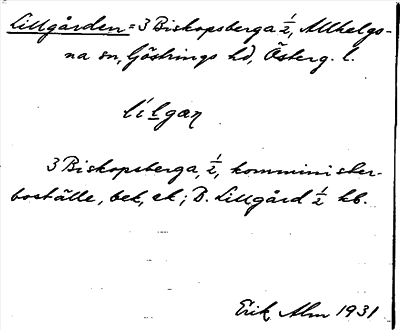 Lillgården = 3 Biskopsberga ½, Allhelgo-
na sn, Göstrings hd, Österg. l.
lílgan
3 Biskopsberga, ½, komminister-
boställe, bek, ek; B. Lillgård ½ kb.
Erik Alm 1931